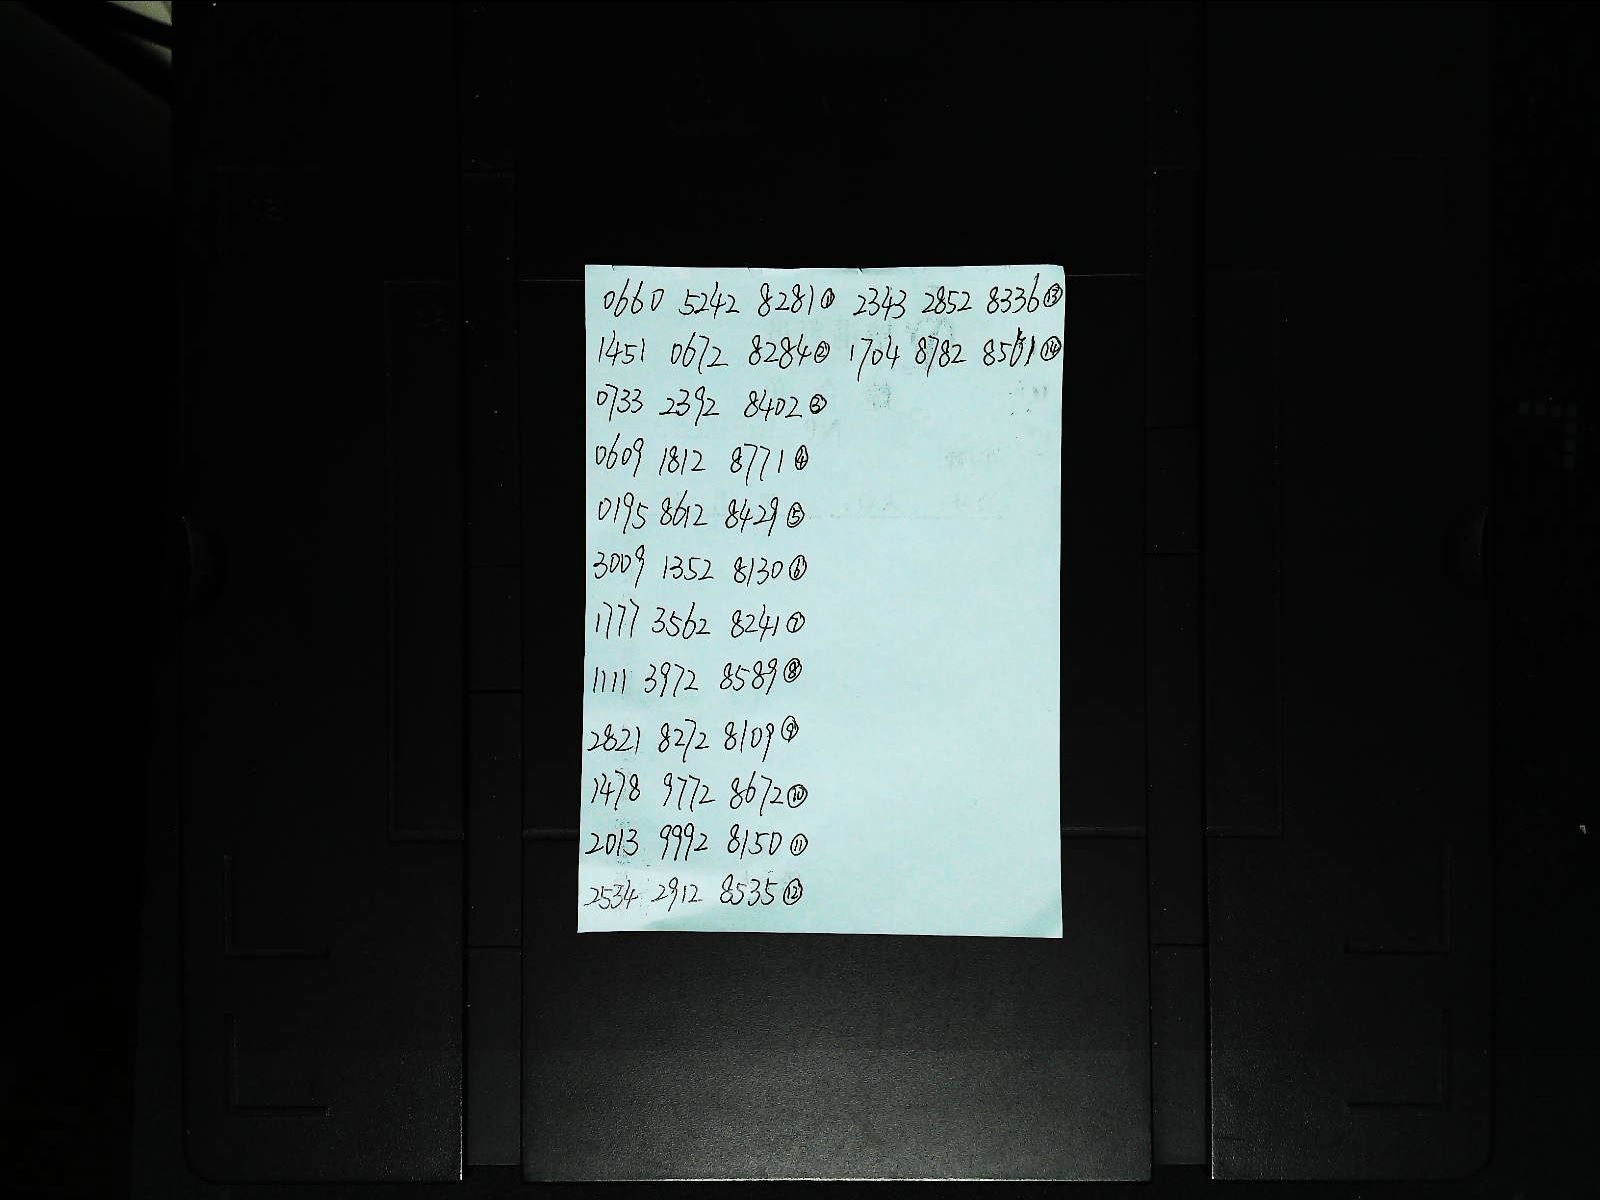 0660 5242 8281① 2343 2852 8336⑬
1451 0672 8284② 1704 8782 8561⑭
0733 2392 8402③
0609 1812 8771④
0195 8612 8429⑤
3009 1352 8130⑥
1777 3562 8241⑦
1111 3972 8589⑧
2821 8272 8109⑨
1478 9772 8672⑩
2013 9992 8150⑪
2534 2912 8535⑫